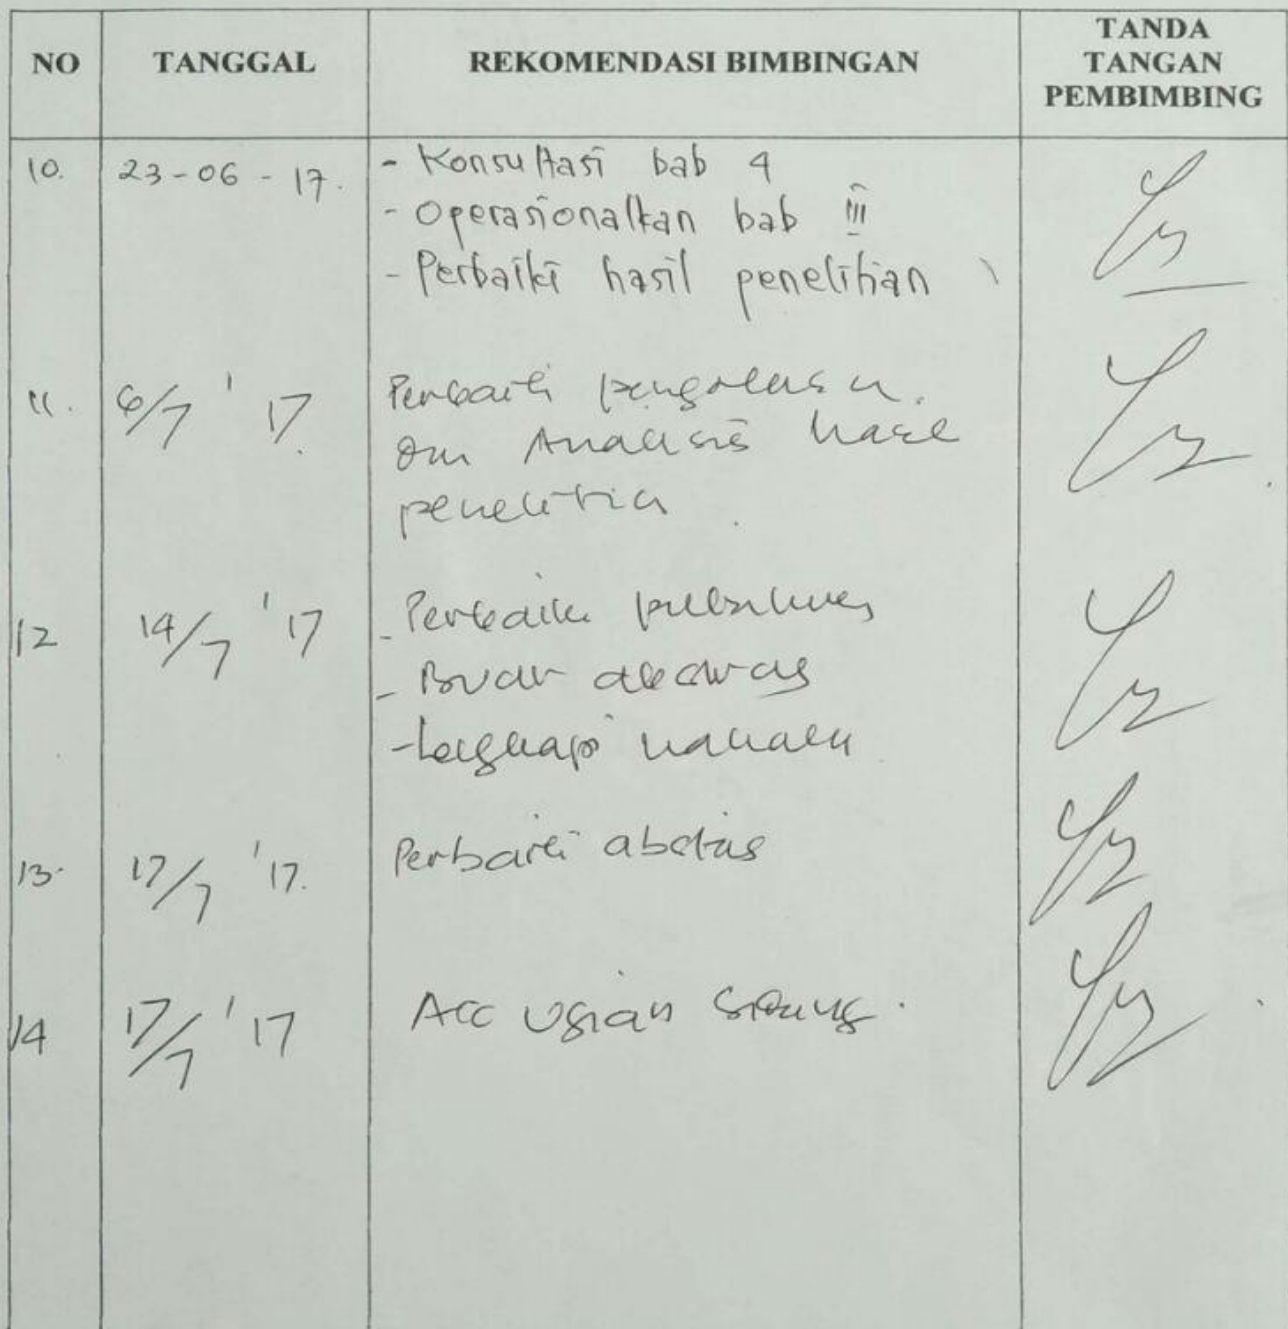 NO TANGGAL REKOMENDASI BIMBINGAN TANDA TANGAN PEMBIMBING
10. 23-06-17. - Konsultasi bab 4
- Operasionalkan bab III
- Perbaiki hasil penelitian
11. 6/7 '17. Perbaiki
Analisis hasil
penelitian
12 14/7 '17 - Perbaiki
-
- Lengkapi
13. 17/7 '17. Perbaiki
14 17/7 '17 Acc Ujian Sidang.